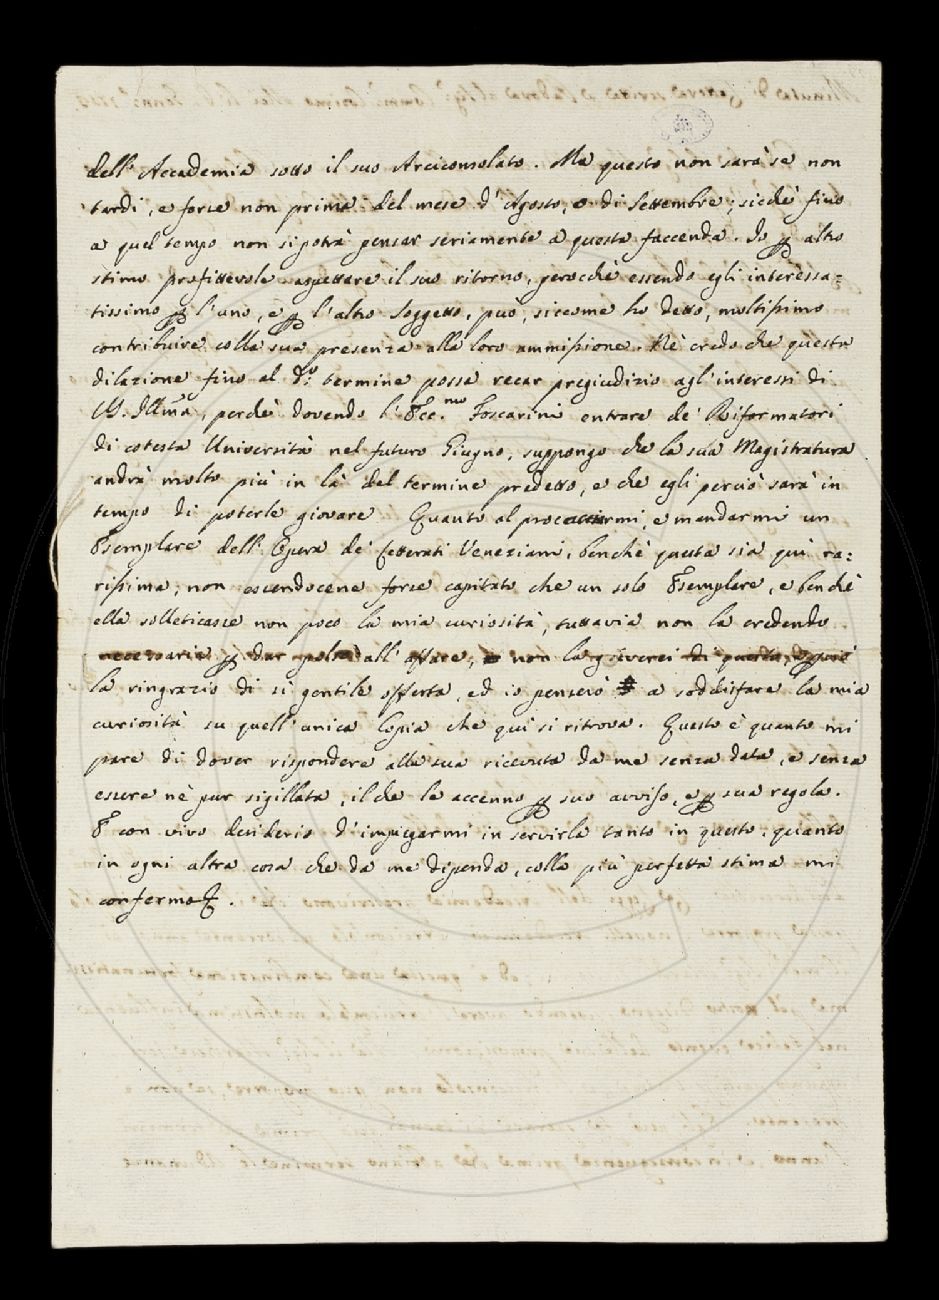 dell' Accademia sotto il suo Arciconsolato. Ma questo non sarà se non
tardi, e forse non prima del mese d' Agosto, o di Settembre; sicchè fino
a quel tempo non si potrà pensar seriamente a questa faccenda. Io ꝑ altro
stimo profittevole aspettare il suo ritorno, perocchè essendo egli interessa=
tissimo ꝑ l' uno, e ꝑ l' altro soggetto, può, siccome ho detto, moltissimo
contribuire colla sua presenza alla loro ammissione. Nè credo che questa
dilazione fino al dº termine possa recar pregiudizio agl' interessi di
V. Illma, perchè dovendo l' Ecc.mo Foscarini entrare de' Riformatori
di cotesta Università nel futuro Giugno, suppongo che la sua Magistratura
andrà molto più in là del termine predetto, e che egli perciò sarà in
tempo di poterle giovare Quanto al procacciarmi, e mandarmi un
Esemplare dell' Opera de' Letterati Veneziani, benchè questa sia quì ra=
rissima, non essendocene forse capitato che un solo Esemplare, e benchè
ella solleticasse non poco la mia curiosità, tuttavia non la credendo
necessaria ꝑ dar polso all' affare, non la graverei di questo,
la ringrazio di sì gentile offerta, ed io penserò a soddisfare la mia
curiosità su quell' unica Copia che quì si ritrova. Questo è quanto mi
pare di dover rispondere alla sua ricevuta da me senza data, e senza
essere nè pur sigillata, il che le accenno ꝑ suo avviso, e ꝑ sua regola.
E con vivo desiderio d' impiegarmi in servirla tanto in questo, quanto
in ogni altra cosa che da me dipenda, colla più perfetta stima mi
confermo &.